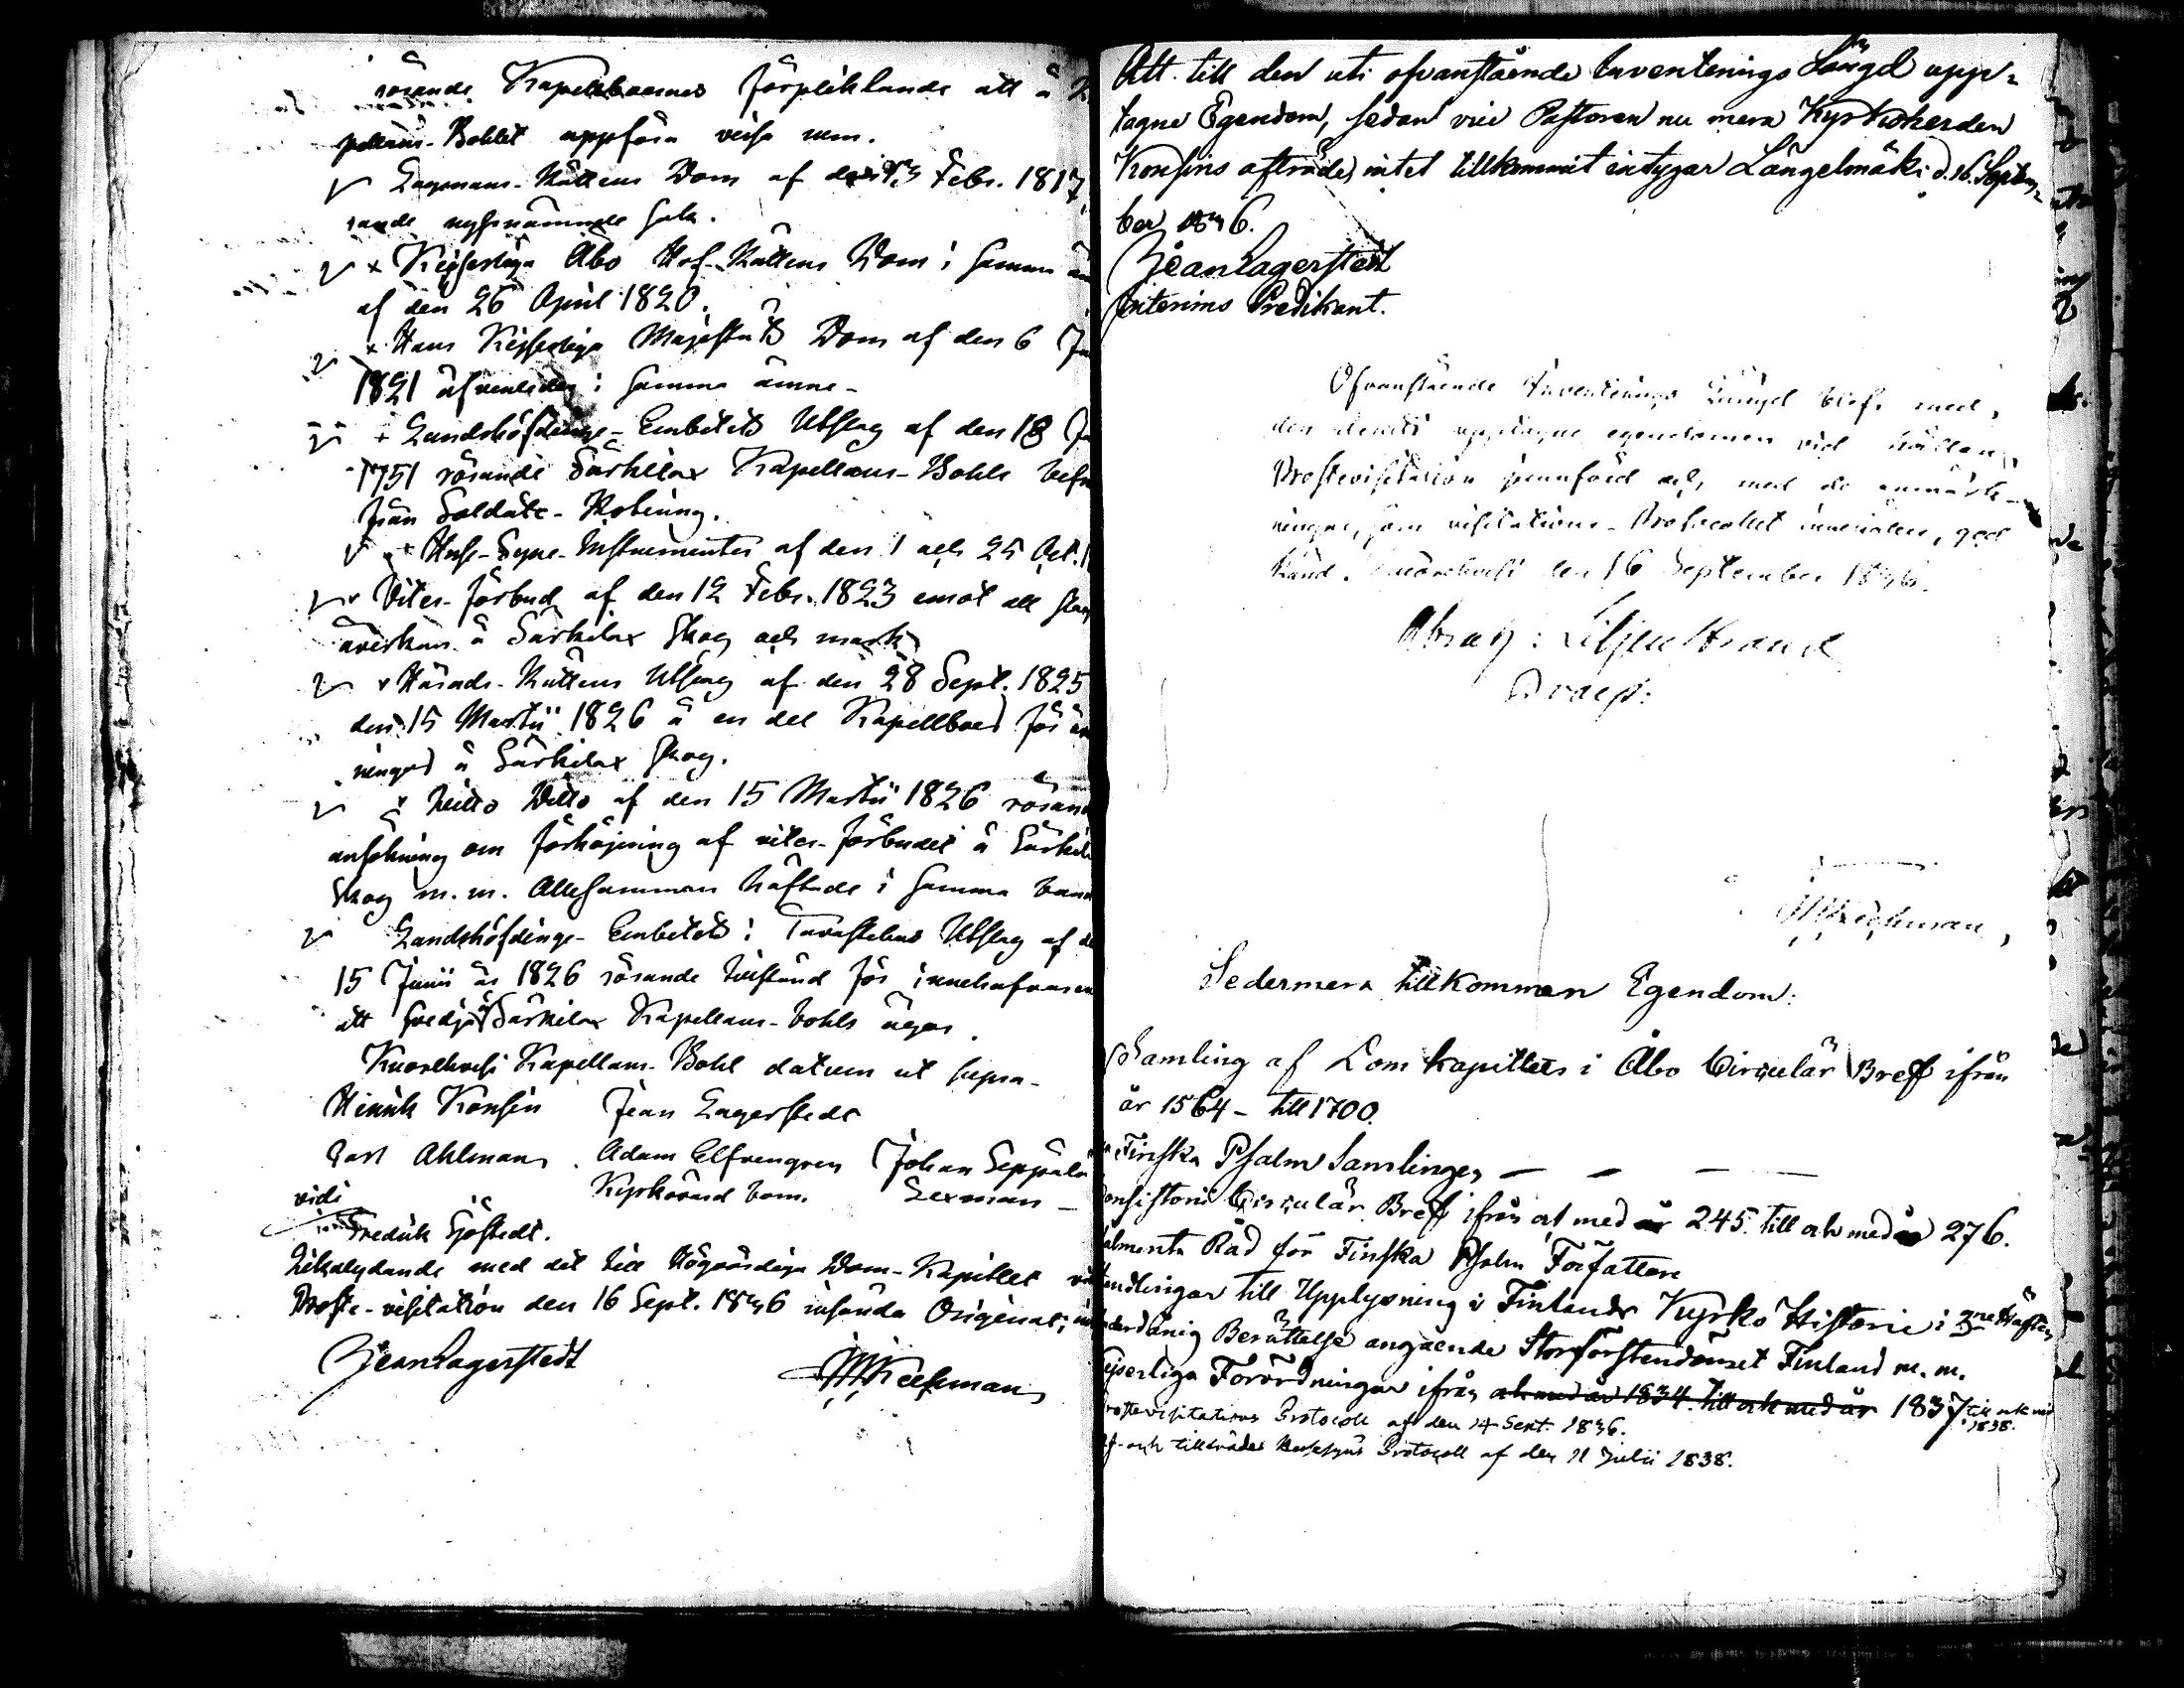 rörande Kapellboernes förpliktande att å Ka
pellans-Bohlet uppföra vissa rum.
Lagmans-Rättens Dom af den 13 Febr. 1817,
rande nyssnämnde sak.
× Kejserliga Åbo Hof-Rättens Dom i samma äm
af den 26 April 1820.
× Hans Kejserliga Majestäts Dom af den 6 Ju
1821 äfvenledes i samma ämne-
+ Landshöfdinge-Embetets Utslag af den 18 Ju
1751 rörande Särkilax Kapellans-Bohls befr
från Soldate-Rotering.
× Huse-Syne-Instrumenter af den 1 och 25 Oct. 1
× Vites-förbud af den 12 Febr. 1823 emot all
åverkan å Särkilax Skog och mark
× Härads-Rättens Utslag af den 28 Sept. 1825
den 15 Martii 1826 å en del Kapellboer för
ningar å Särkilax Skog.
× Ditto Ditto af den 15 Martii 1826 rörand
ansökning om förhöjning af vites-förbudet å Särkila
Skog m. m. Allesamman häftade i samma band
Landshöfdinge-Embetets i Tavastehus Utslag af de
15 Junii år 1826 rörande tillstånd för innehafvaren
att svedja å Särkilax Kapellans-bohls ägor.
Kuorehvesi Kapellans-Bohl datum ut supra-
Henrik Konsin Jean Lagerstedt
Carl Ahlman. Adam Elfvengren Johan Seppälä
Kyrkovärd bom. Sexman -
vidi
Fredrik Sjöstedt.
Likalydande med det till Högvördiga Dom-Kapitlet
Proste-visitation den 16 Sept. 1836 insända Original;
Jean Lagerstedt
Att till den uti ofvanstående Inventerings Längd upp-
tagne Egendom, sedan vice Pastoren nu mera Kyrkoherden
Konsins afträde, intet tillkommit intygar Längelmäki d. 16. Septem-
ber 1836.
Jean Lagerstedt
Interims Predikant.
Ofvanstående Inventerings Längd blef, med
den deruti upptagne egendomen vid hållen
Prostevisitation jemnförd och med de anmärk-
ningar, som visitations-Protocollet innehåller, god
känd. Kuorehvesi den 16 September 1836.
Abrah: Liljenstrand
Praep:
Sedermera tillkommen Egendom:
Samling af Domkapitlets i Åbo Circulär Bref ifrån
år 1564 - till 1700.
Finska Psalm Samlingen — — — —
onsistorii Circulär Bref ifrån och med 245. till och med 276.
älmenta Råd för Finska Psalm Författare
andlingar till Upplysning i Finlands Kyrko Historie i 3ne Häften
nderdånig Berättelse angående Storförstendömet Finland m. m.
ejserliga Förordningar ifrån och med år 1834. till och med år 1837 till och med 1838.
rostevisitations Protocoll af den 14 Sept. 1836.
af- och tillträdes Husesyns Protocoll af den 11 Julii 1838.